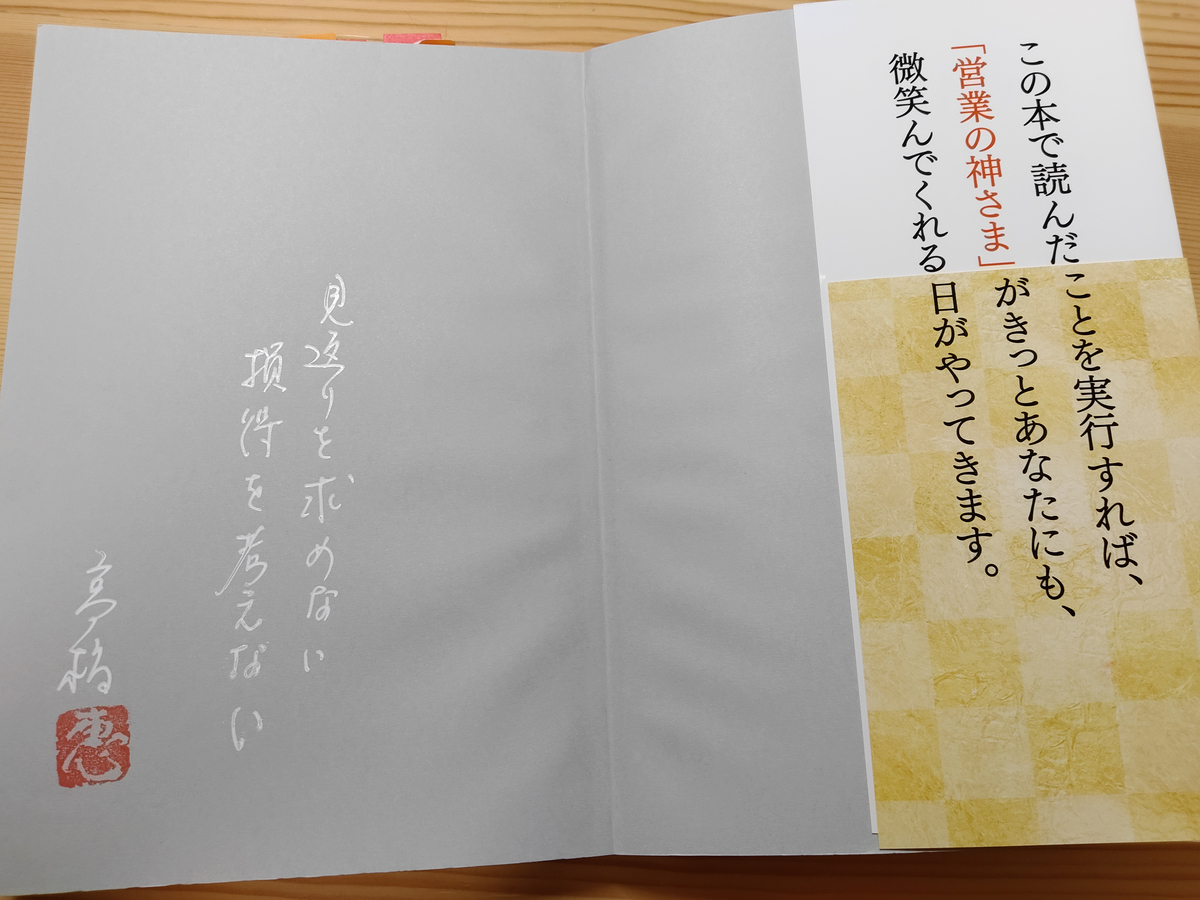 この本で読んだことを実行すれば、
「営業の神さま」がきっとあなたにも、
微笑んでくれる日がやってきます。
見返りを求めない
損得を考えない
高橋
恵